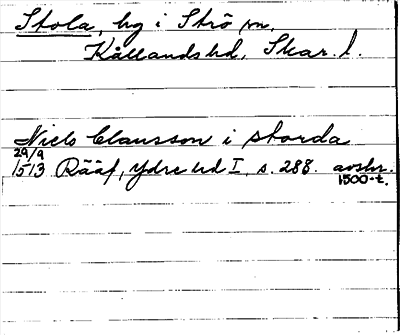 Stola, hg i Strö sn,
Kållands hd, Skar. l.
Niels Clausson i Storda
29/9
1513 Rääf, Ydre hd I, s. 288. avskr.
1500-t.